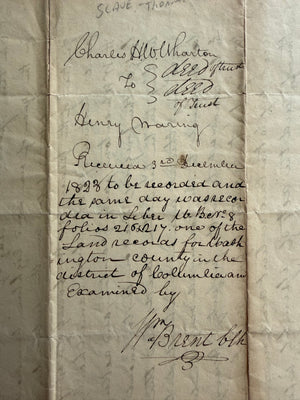 SLAVE - THOMAS
Charles H W Wharton
To deed of trust
deed
of Trust
Henry Waring
Received 3rd december
1828 to be recorded and
the same day was recor
ded in Liber W B No
folios 216 & 217. one of the
Land records for wash
ington county in the
district of Collumbia an
Examined by
Wm Brent Clk